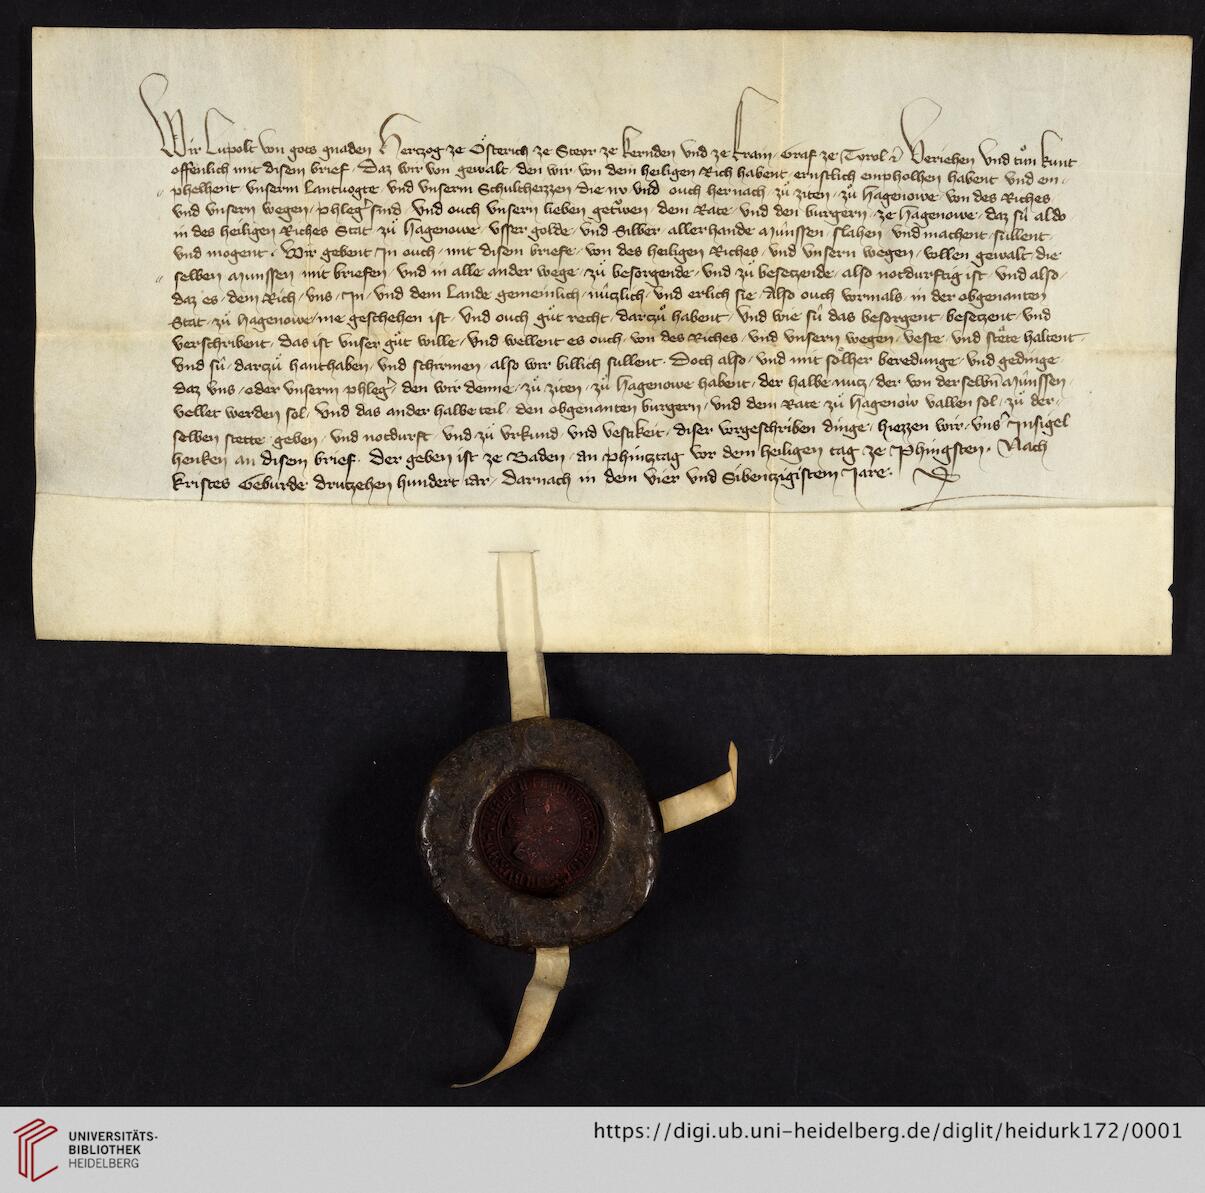 Wir Lupolt von gots gnaden Hertzog ze Österich ze Steyr ze Kernden und ze Krain Graf ze Tyrol ꝛc Veriehen und tůn kunt
offenlich mit disem brief. Daz wir von gewalt, den wir von dem heiligen Rich habent, ernstlich empholhen habent und en-
phelhent unserm Lantvogte, und unserm Schultheizzen, die nu und ouch hernach, zů ziten, zů Hagenowe von des Riches
und unsern wegen, phleger sind, und ouch unsern lieben getrüwen, dem Rate, und den burgern, ze Hagenowe, daz sü aldo
in des heiligen Riches Stat, zů Hagenowe, usser golde, und Silber, allerhande Münssen, slahen, und machent, süllent,
und mogent. Wir gebent In ouch, mit disem briefe, von des heiligen Riches, und unsern wegen, vollen gewalt, die
selben Münssen mit briefen, und in alle ander wege, zů besorgende, und zů besetzende, also notdurftig ist, und also,
daz es, dem Rich, uns, In, und dem Lande gemeinlich, nützlich, und erlich sie, Also ouch vormals, in der obgenanten
Stat, zů Hagenowe, me geschehen ist, und ouch gůt recht, darczů habent, und wie sü das besorgent, besetzent, und
verschribent, das ist unser gůt wille, und wellent es ouch, von des Riches, und unsern wegen, veste, und stete haltent,
und sü, darczů hanthaben, und schirmen, also wir billich sullent. Doch also, und mit sölher beredunge, und gedinge,
daz uns, oder unserm phleger, den wir denne, zů ziten, zů Hagenowe habent, der halbe nutz, der von derselbn Münssen,
vellet werden sol, und das ander halbe teil, den obgenanten burgern, und dem Rate zů Hagenow vallen sol, zů der,
selben stette geben, und notdurft, und zů urkund, und vestkeit, diser vorgeschriben dinge, hiezzen wir, uns Insigel
henken an disem brief. Der geben ist ze Baden, an phintztag vor dem heiligen tag ze Phingsten. Nach
Kristes Geburde drutzehen hundert iar, Darnach in dem vier und Sibentzigistem Jare.
UNIVERSITÄTS-
BIBLIOTHEK
HEIDELBERG
https://digi.ub.uni-heidelberg.de/diglit/heidurk172/0001